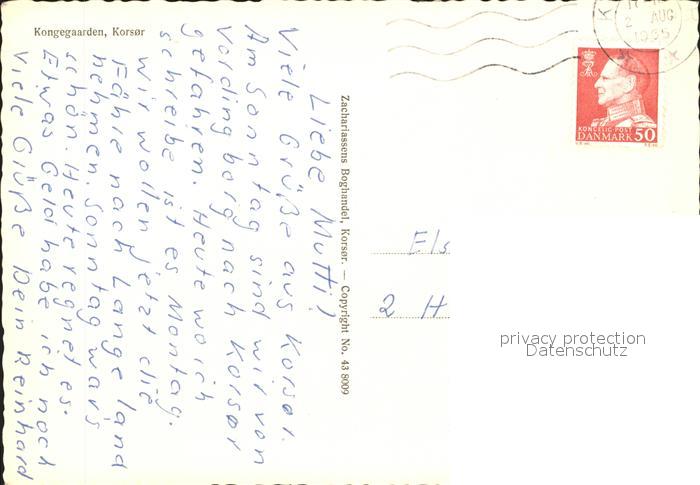 Kongegaarden, Korsør
Liebe Mutti!
Viele Grüße aus Korsør.
Am Sonntag sind wir von
Vordingborg nach Korsør
gefahren. Heute wo ich
schreibe ist es Montag.
Wir wollen jetzt die
Fähre nach Langeland
nehmen. Sonntag war's
schön. Heute regnet es.
Etwas Geld habe ich noch
Viele Grüße Dein Reinhard
Zachariassens Boghandel, Korsør. — Copyright No. 43 8009
K
2 AUG
1965
KONGELIG·POST
DANMARK 50
Els
2 H
privacy protection
Datenschutz